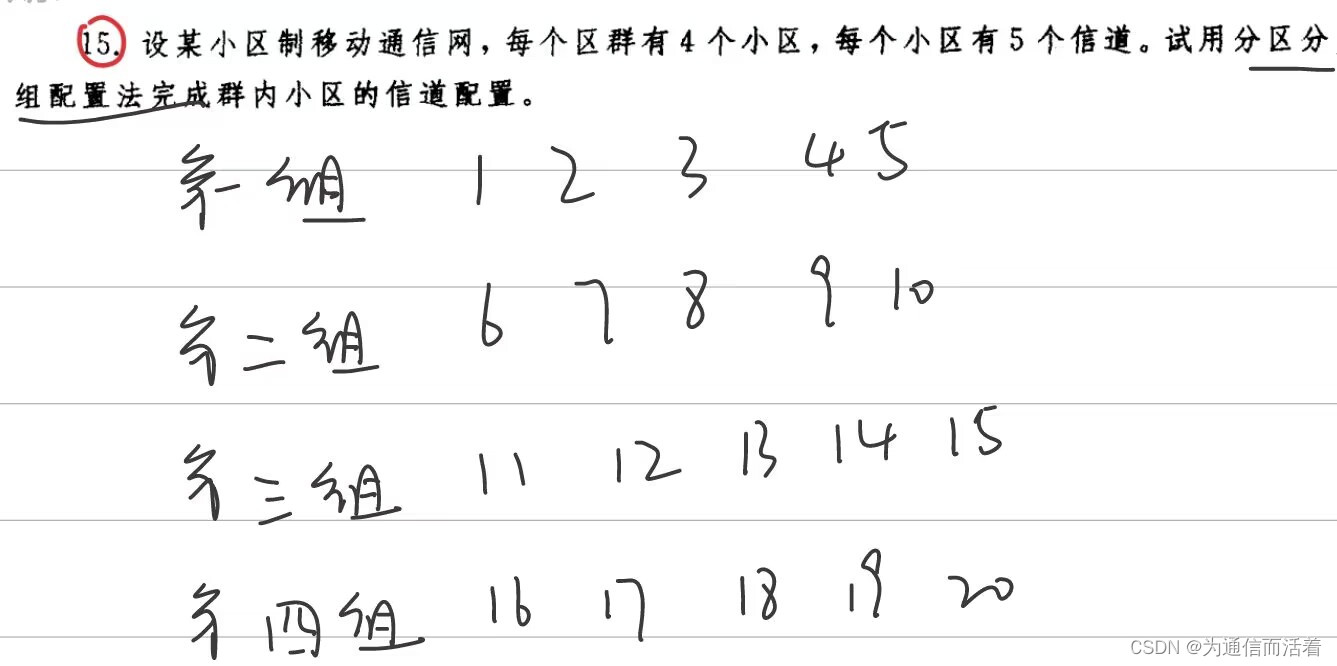 15. 设某小区制移动通信网，每个区群有4个小区，每个小区有5个信道。试用分区分
组配置法完成群内小区的信道配置。
第一组 1 2 3 4 5
第二组 6 7 8 9 10
第三组 11 12 13 14 15
第四组 16 17 18 19 20
CSDN @为通信而活着